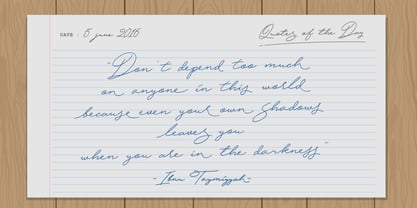 DATE : 5 june 2016
Quotes of the Day
"Don't depend too much
on anyone in this world
because even your own shadows
leaves you
when you are in the darkness"
- Ibnu Taymiyyah -